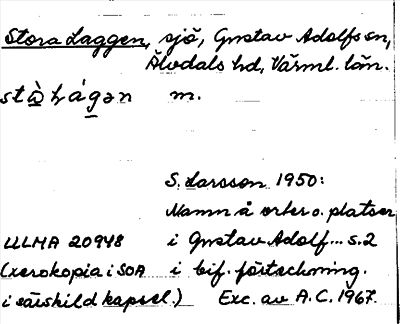 Stora Laggen, sjö, Gustav Adolfs sn,
Älvdals hd, Värml. län.
m.
S. Larsson 1950:
Namn å orter o. platser
ULMA 20948 i Gustav Adolf... s. 2
(xerokopia i SOA i bif. förteckning.
i särskild kapsel.) Exc. av A.C. 1967.